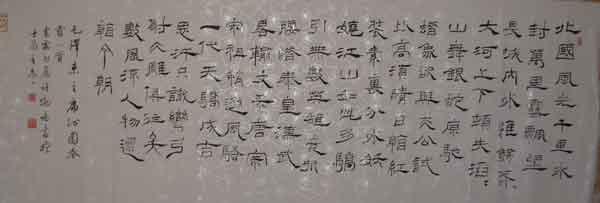 北國風光千里冰
封萬里雪飄望
長城內外惟餘莽
大河上下頓失滔〻
山舞銀蛇原馳
蠟象欲與天公試
比高須晴日看紅
裝素裹分外妖
嬈江山如此多嬌
引無數英雄競折
腰惜秦皇漢武
略輸文采唐宗
宋祖稍遜風騷
一代天驕成吉
思汗只識彎弓
射大雕俱往矣
數風流人物還
看今朝
毛澤東主席沁園春
雪一首